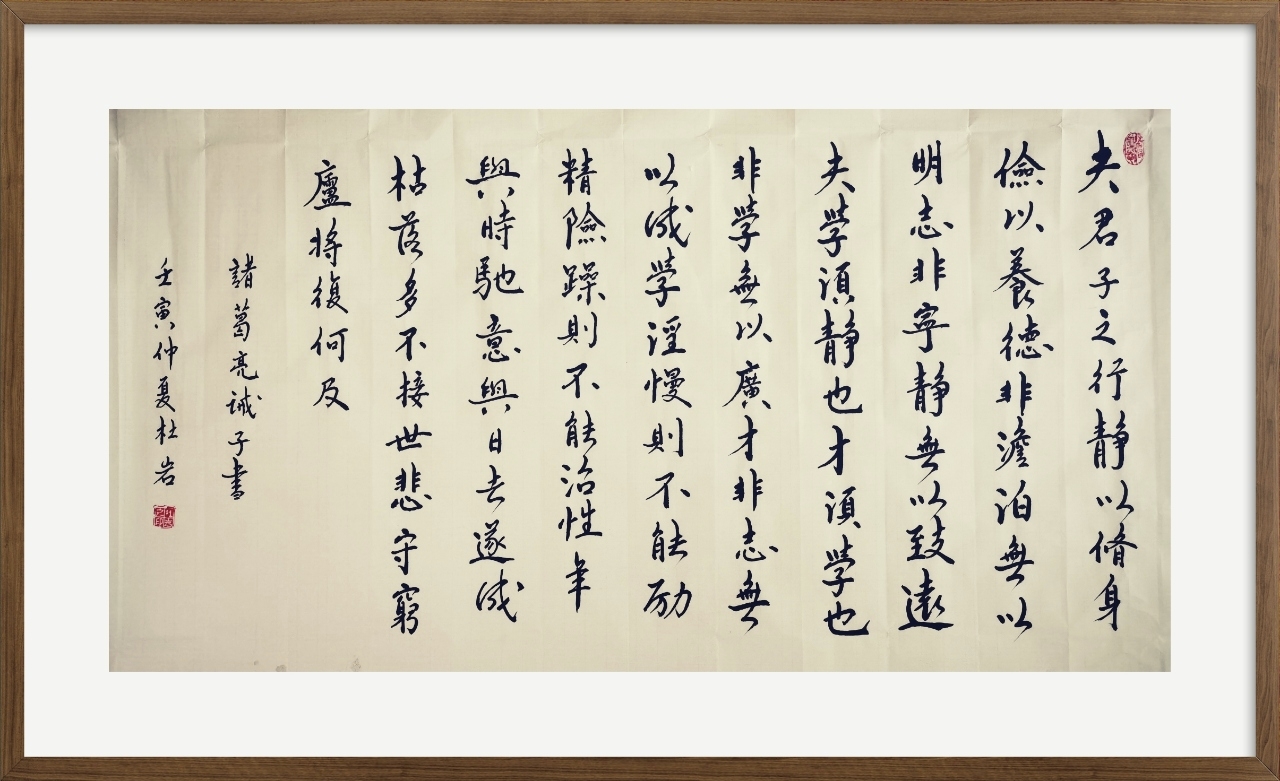 夫君子之行静以脩身
儉以養德非澹泊無以
明志非寧静無以致遠
夫學須静也才須學也
非學無以廣才非志無
以成學淫慢則不能励
精險躁則不能治性年
與時馳意與日去遂成
枯落多不接世悲守窮
廬将復何及
諸葛亮诫子書
壬寅仲夏杜岩